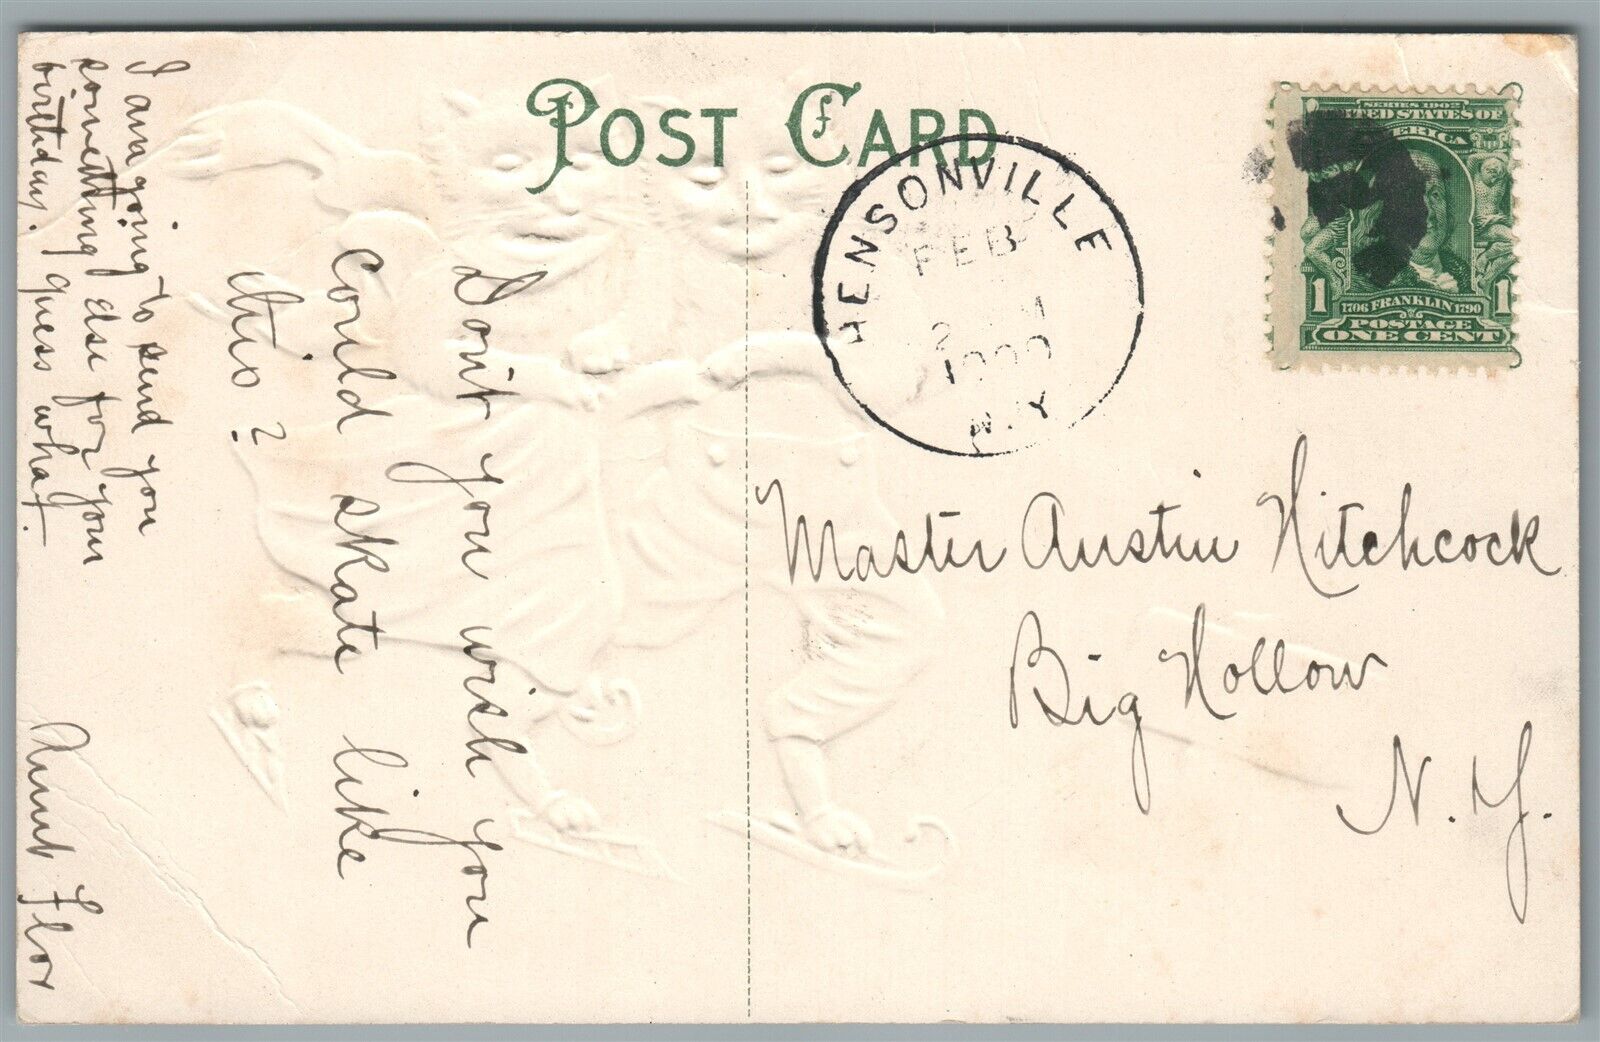 POST CARD
HENSONVILLE
FEB
2
N.Y.
SERIES 1902
UNITED STATES OF
AMERICA
1 1706 FRANKLIN 1790 1
POSTAGE
ONE CENT
Don't you wish you
could skate like
this?
I am going to send you
something else for your
birthday. Guess what.
Aunt Flor
Master Austin Hitchcock
Big Hollow
N. Y.